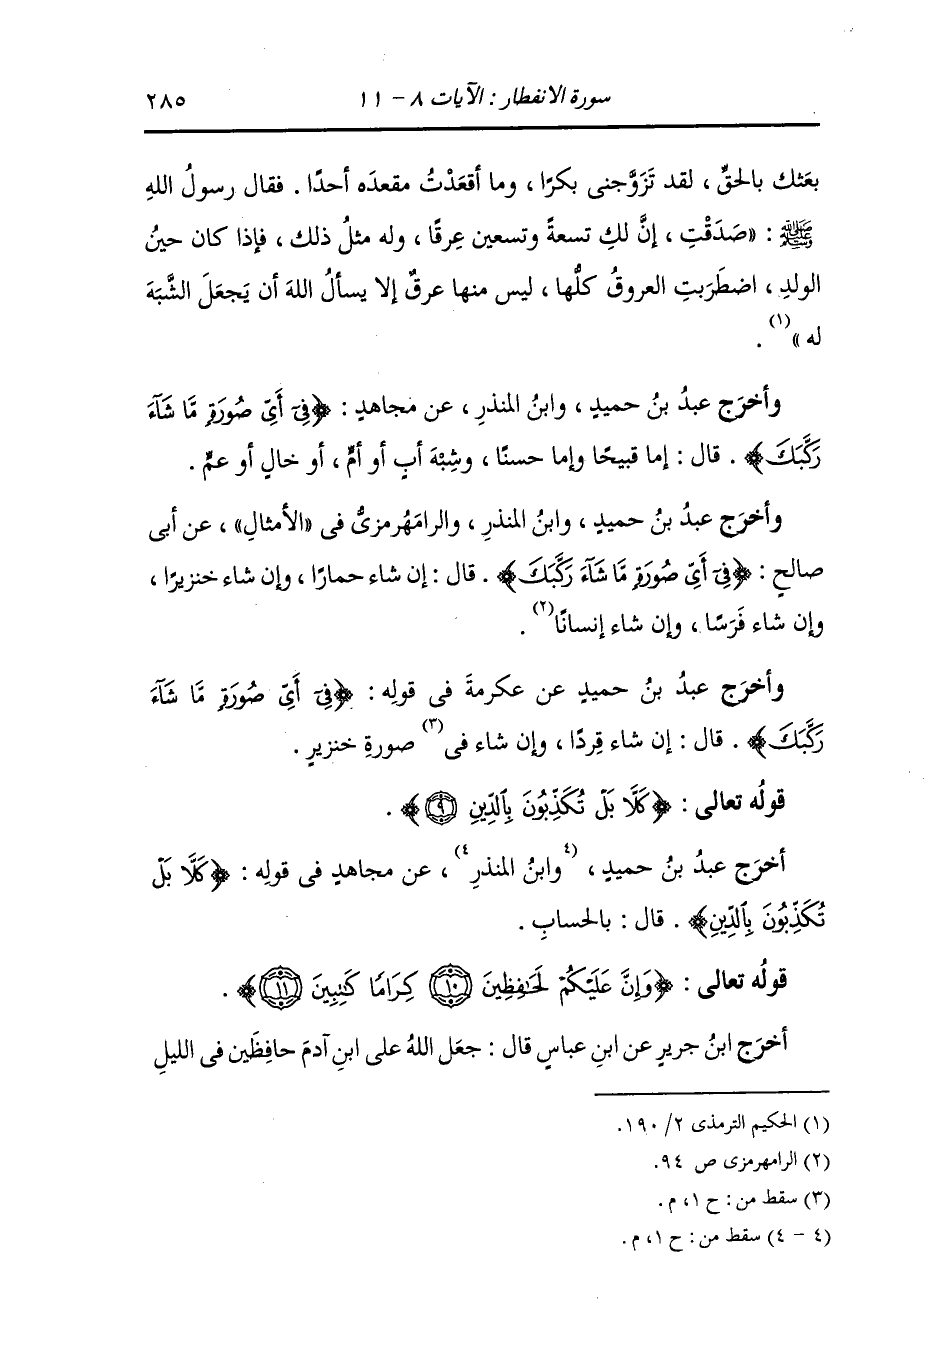 سورة الانفطار : الآيات ٨ - ١١ ٢٨٥
بعَثك بالحقِّ ، لقد تَزَوَّجنى بكرًا ، وما أقعَدْتُ مقعدَه أحدًا . فقال رسولُ اللهِ
ﷺ : «صَدَقْتِ ، إنَّ لكِ تسعةً وتسعين عِرقًا ، وله مثلُ ذلك ، فإذا كان حينُ
الولدِ ، اضطَرَبتِ العروقُ كلُّها ، ليس منها عرقٌ إلا يسألُ اللهَ أن يَجعَلَ الشَّبَهَ
له»(١) .
وأخرَج عبدُ بنُ حميدٍ ، وابنُ المنذرِ ، عن مجاهدٍ : ﴿فِىٓ أَىِّ صُورَةٍ مَّا شَآءَ
رَكَّبَكَ﴾ . قال : إما قبيحًا وإما حسنًا ، وشِبْهَ أبٍ أو أمٍّ ، أو خالٍ أو عمٍّ .
وأخرَج عبدُ بنُ حميدٍ ، وابنُ المنذرِ ، والرامَهُرمزىُّ فى «الأمثالِ» ، عن أبى
صالحٍ : ﴿فِىٓ أَىِّ صُورَةٍ مَّا شَآءَ رَكَّبَكَ﴾ . قال : إن شاء حمارًا ، وإن شاء خنزيرًا ،
وإن شاء فَرَسًا ، وإن شاء إنسانًا(٢) .
وأخرَج عبدُ بنُ حميدٍ عن عكرمةَ فى قولِه : ﴿فِىٓ أَىِّ صُورَةٍ مَّا شَآءَ
رَكَّبَكَ﴾ . قال : إن شاء قِردًا ، وإن شاء فى(٣) صورةِ خنزيرٍ .
قولُه تعالى : ﴿كَلَّا بَلْ تُكَذِّبُونَ بِٱلدِّينِ ٩﴾ .
أخرَج عبدُ بنُ حميدٍ ، (٤وابنُ المنذرِ٤) ، عن مجاهدٍ فى قولِه : ﴿كَلَّا بَلْ
تُكَذِّبُونَ بِٱلدِّينِ﴾ . قال : بالحسابِ .
قولُه تعالى : ﴿وَإِنَّ عَلَيْكُمْ لَحَٰفِظِينَ ١٠ كِرَامًا كَٰتِبِينَ ١١﴾ .
أخرَج ابنُ جريرٍ عن ابنِ عباسٍ قال : جعَل اللهُ على ابنِ آدمَ حافِظَين فى الليلِ
(١) الحكيم الترمذى ٢/ ١٩٠.
(٢) الرامهرمزى ص ٩٤.
(٣) سقط من : ح ١، م .
(٤ - ٤) سقط من : ح ١، م .